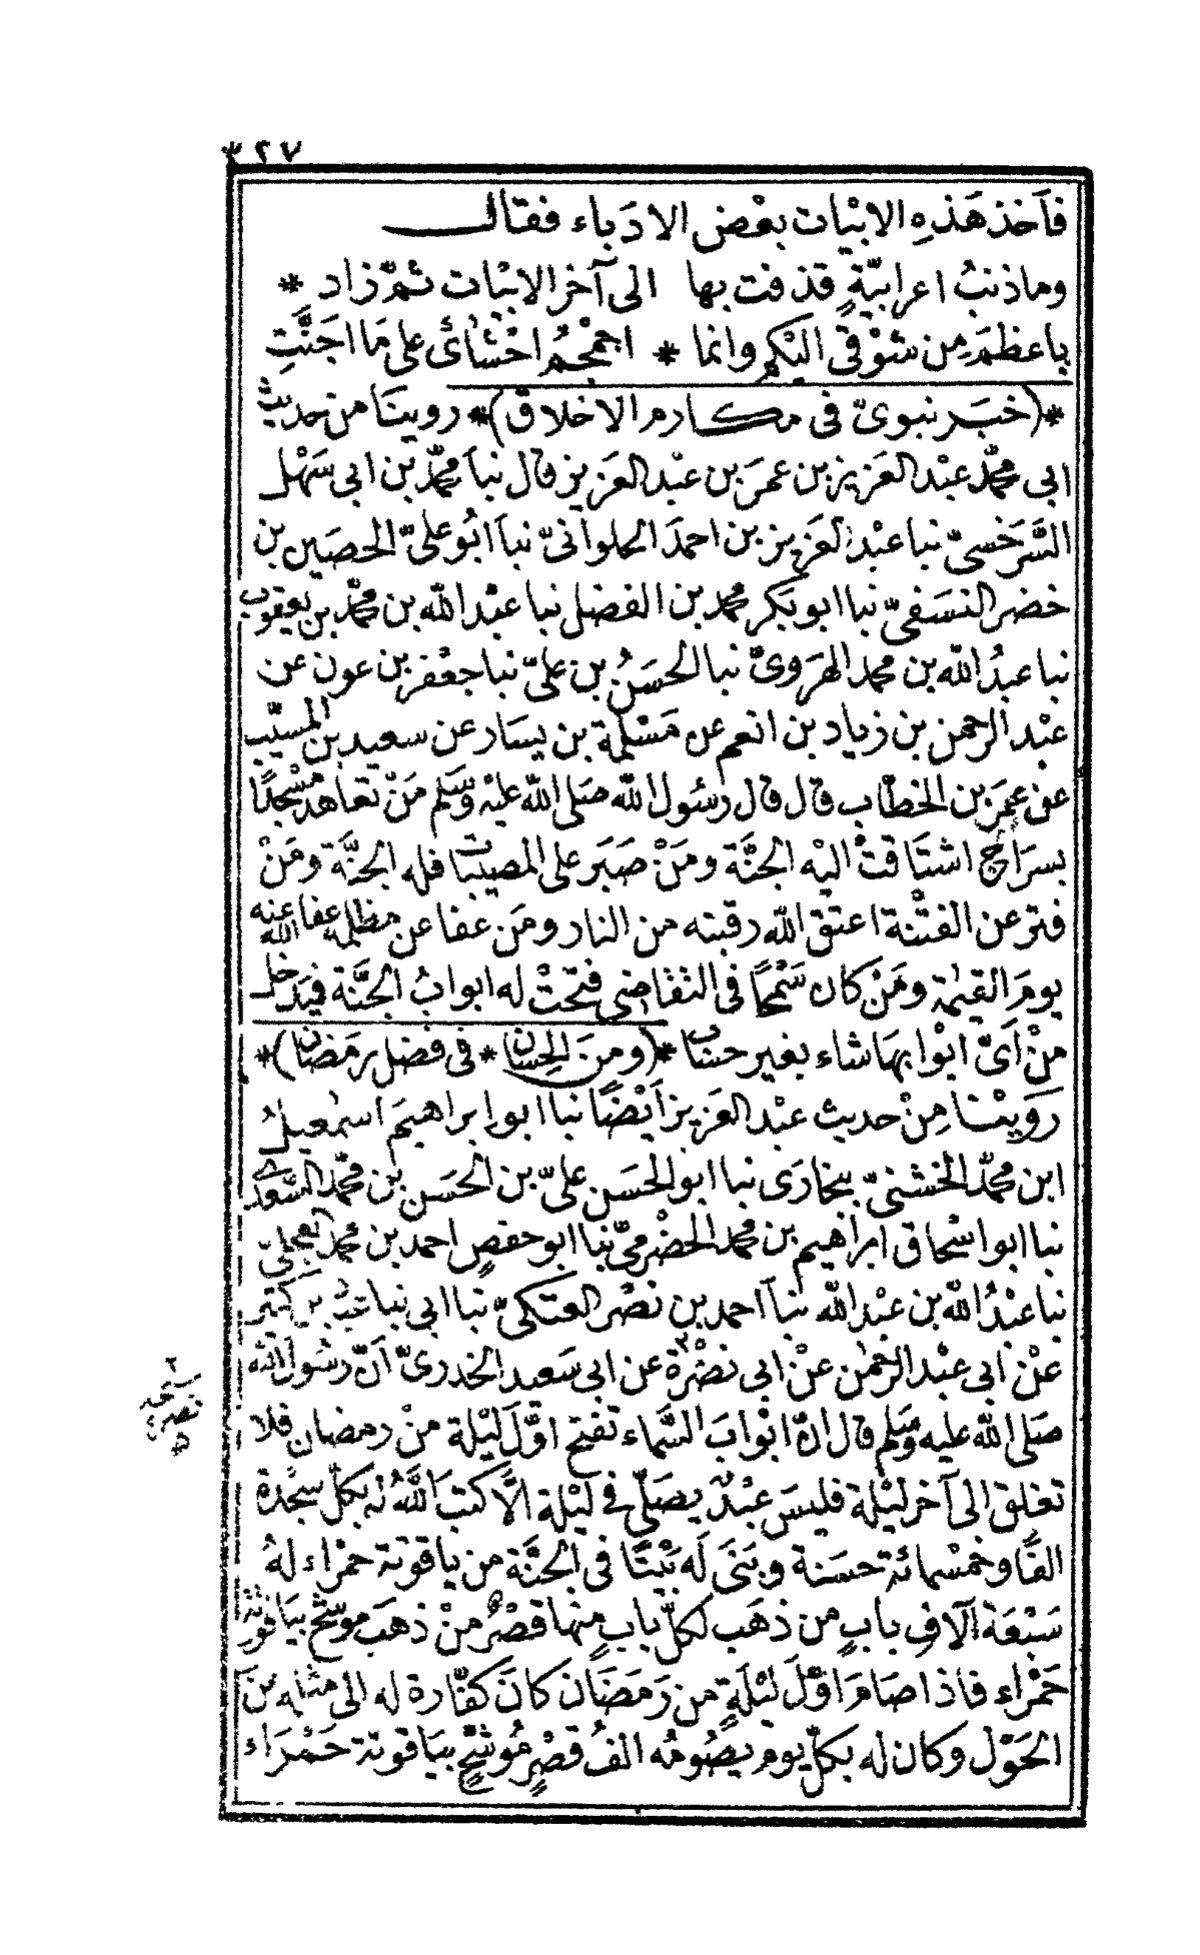 ٣٢٧
فآخذ هذه الابيات بعض الادباء فقال
وماذنب اعرابيّةٍ قذفت بها الى آخر الابيات ثمّ زاد *
باعظمَ من شوقى اليكم وانما * اجمجم احشائى على ما اجنّتِ
*(خبر نبوىّ فى مكارم الاخلاق)* روينا من حديث
ابى محمّد عبد العزيز بن عمر بن عبد العزيز قال نبا محمّد بن ابى سهل
السّرخسىّ نبا عبد العزيز بن احمد الحلوانىّ نبا ابو علىّ الحصين بن
خضر النسفىّ نبا ابو بكر محمد بن الفضل نبا عبد الله بن محمّد بن يعقوب
نبا عبد الله بن محمد الهروىّ نبا الحسن بن علىّ نبا جعفر بن عون عن
عبد الرحمن بن زياد بن انعم عن مسلمة بن يسار عن سعيد بن المسيّب
عن عمر بن الخطاب قال قال رسول الله صلى الله عليه وسلم من تعاهد مسجدًا
بسراج اشتاقت اليه الجنّة ومن صبر على المصيبات فله الجنّة ومن
فتر عن الفتنة اعتق الله رقبته من النار ومن عفا عن مظلمه عفا الله عنه
يوم القيمة ومن كان سمحًا فى التقاضى فتحت له ابواب الجنّة فيدخل
من اىّ ابوابها شاء بغير حساب *(ومن الحسان * فى فضل رمضان)*
روينا من حديث عبد العزيز ايضًا نبا ابو ابراهيم اسمعيل
ابن محمّد الخشنىّ بخارى نبا ابو الحسن علىّ بن الحسن بن محمّد السّعدى
نبا ابو اسحاق ابراهيم بن محمد الحضرمىّ نبا ابو حفص احمد بن محمد العجلىّ
نبا عبد الله بن عبد الله نبا احمد بن نصر العتكىّ نبا ابى نبا
عن ابى عبد الرحمن عن ابى نضرة ٢ عن ابى سعيد الخدرىّ انّ رسول الله
صلى الله عليه وسلم قال انّ ابواب السّماء تفتح اوّل ليلة من رمضان فلا
تغلق الى آخر ليلة فليس عبد يصلّى فى ليلة الّا كتب الله له بكلّ سجدة
الفًا وخمسمائة حسنة وبنى له بيتًا فى الجنّة من ياقوتة حمراء له
سبعة آلاف باب من ذهب لكلّ باب منها قصر من ذهب موشّح بياقوتة
حمراء فاذا صام اوّل ليلة من رمضان كان كفّارة له الى مثله من
الحول وكان له بكلّ يوم يصومه الف قصر موشّح بياقوتة حمراء
٢